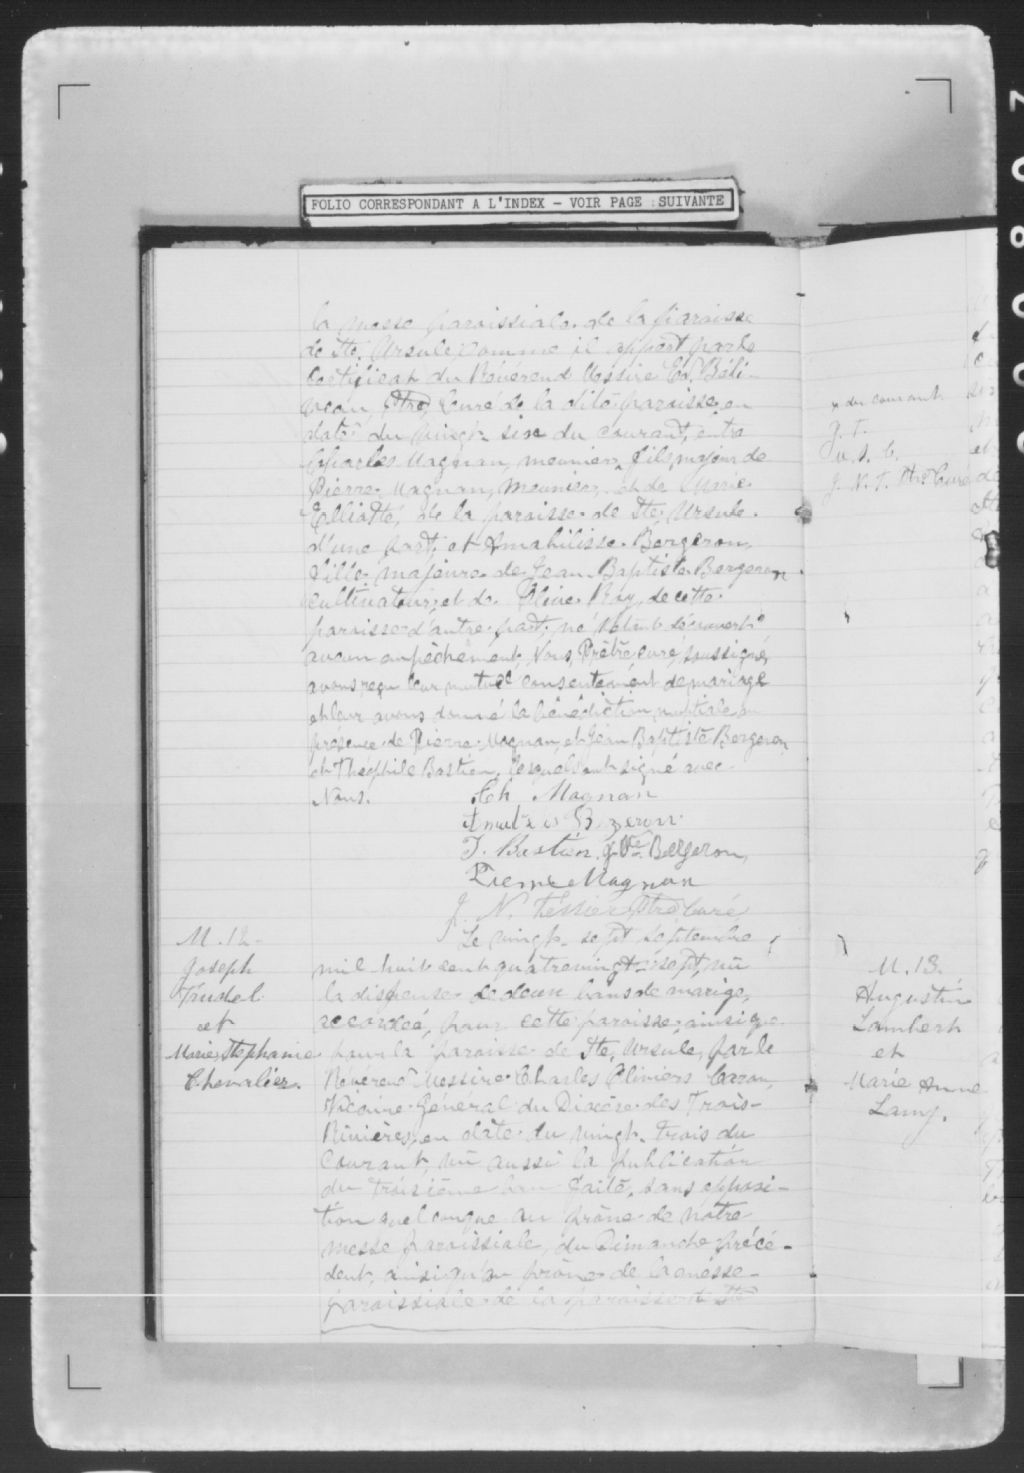 FOLIO CORRESPONDANT A L'INDEX - VOIR PAGE SUIVANTE
la messe paroissiale de la paroisse
de Ste Ursule comme il appert par le
Certificat du Révérend Messire Ed. Béli-
veau, Ptre, Curé de la dite paroisse en
date du vingt six du courant, entre
Charles Magnan, meunier, fils majeur de
Pierre Magnan, meunier, et de Marie
de la paroisse de Ste Ursule
d'une part, et Bergeron,
fille majeure de Jean Baptiste Bergeron
cultivateur, et de Roy, de cette
paroisse d'autre part, ne s'étant découvert
aucun empêchement, Nous, Prêtre curé, soussigné,
avons reçu leur mutuel consentement de mariage
et leur avons donné la bénédiction nuptiale en
présence de Pierre Magnan, et Jean Baptiste Bergeron
et Théophile Bastien, lesquels ont signé avec
Nous.
Ch Magnan
T. Bastien J. Bte Bergeron,
Pierre Magnan
J. N. Tessier Ptre Curé
M. 12-
Joseph
Trudel
et
Marie Stephanie
Chevalier.
Le vingt-sept Septembre
mil huit cent quatrevingt-sept, vu
la dispense de deux bans de mariage,
accordée, pour cette paroisse, ainsi que
pour la paroisse de Ste Ursule, par le
Révérend Messire Charles Oliviers Caron,
Vicaire Général du Diocèse des Trois-
Rivières, en date du vingt-trois du
Courant, vu aussi la publication
du troisième ban faite, sans opposi-
tion quelconque au prône de notre
messe paroissiale, du Dimanche précé-
dent, ainsi qu'au prône de la messe
paroissiale de la paroisse de Ste
x du courant
J. T.
J. N. T. Ptre Curé
M. 13.
Augustin
Lambert
et
Marie Anne
Lamy.